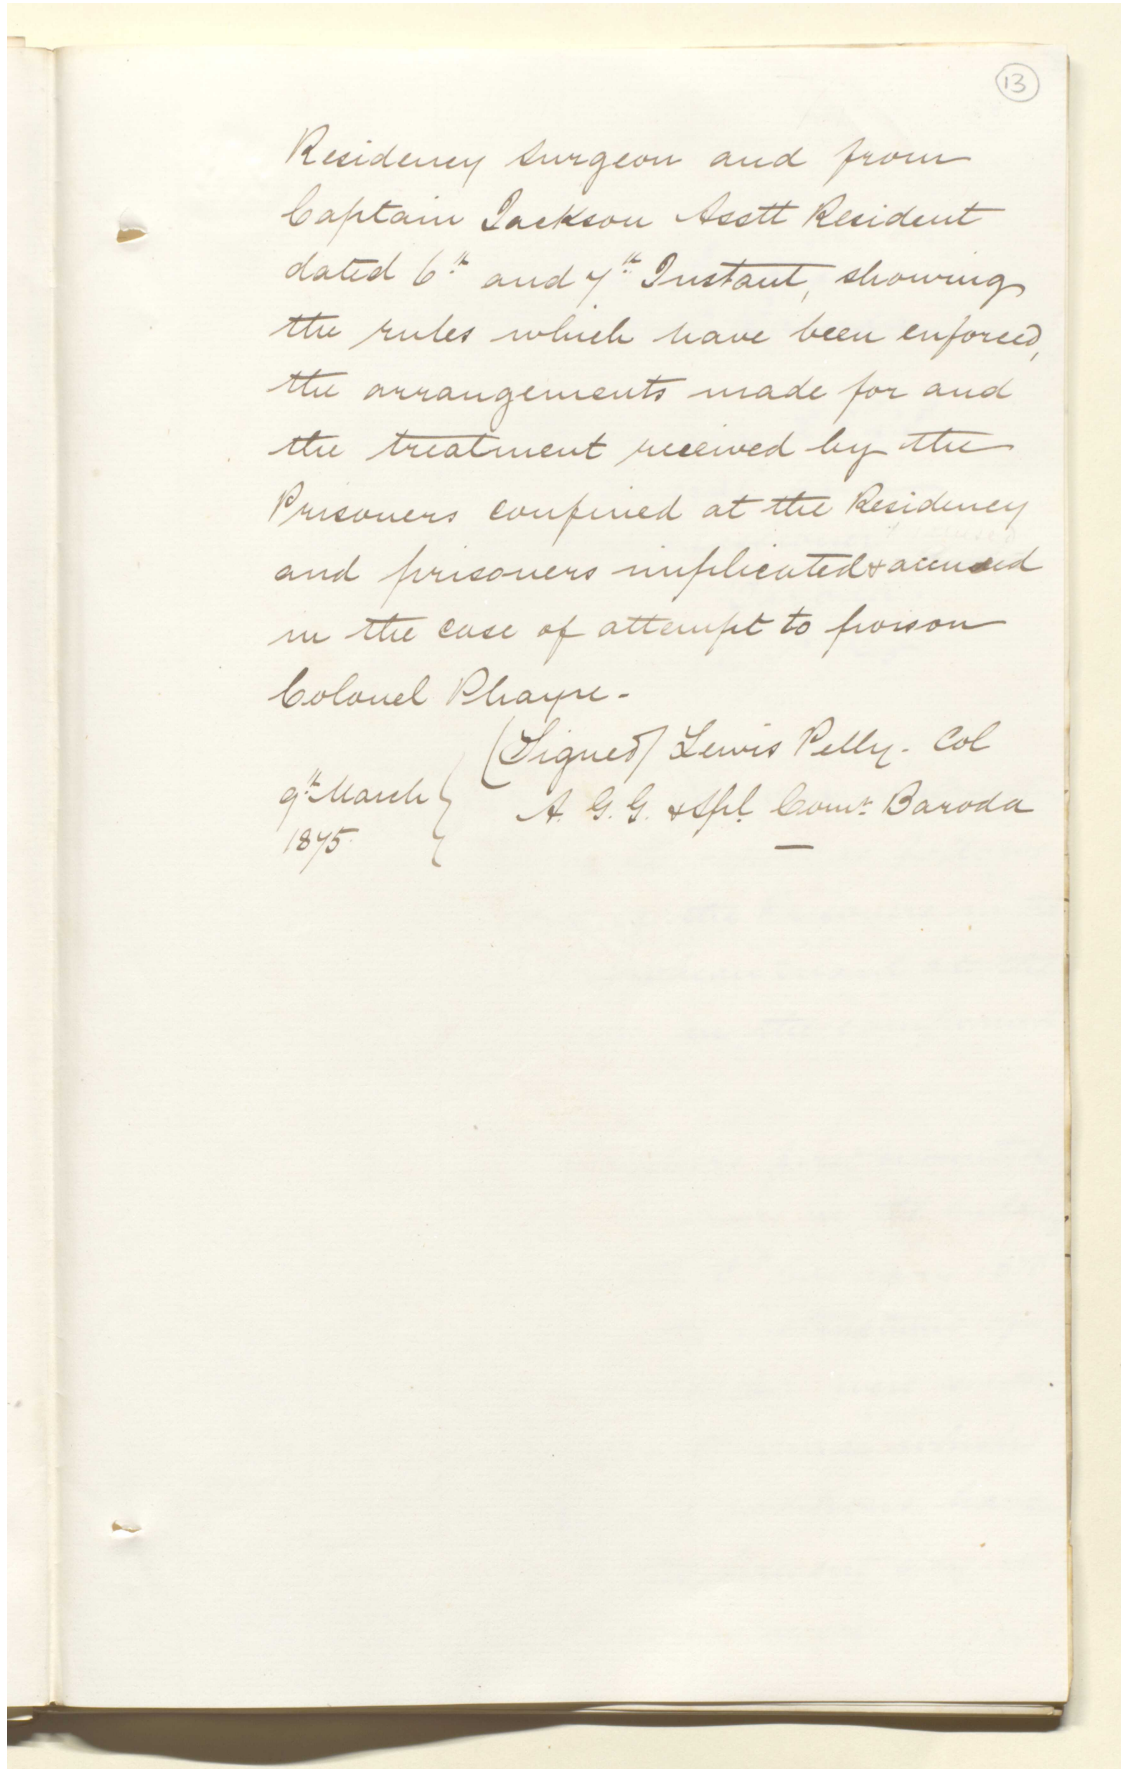 13
Residency Surgeon and from
Captain Jackson Asstt Resident
dated 6th and 7th Instant, showing
the rules which have been enforced,
the arrangements made for and
the treatment received by the
Prisoners confined at the Residency
and prisoners implicated & accused
in the case of attempt to poison
Colonel Phayre -
(Signed) Lewis Pelly - Col
9th March
A. G. G. & Spl. Comr. Baroda
1875.